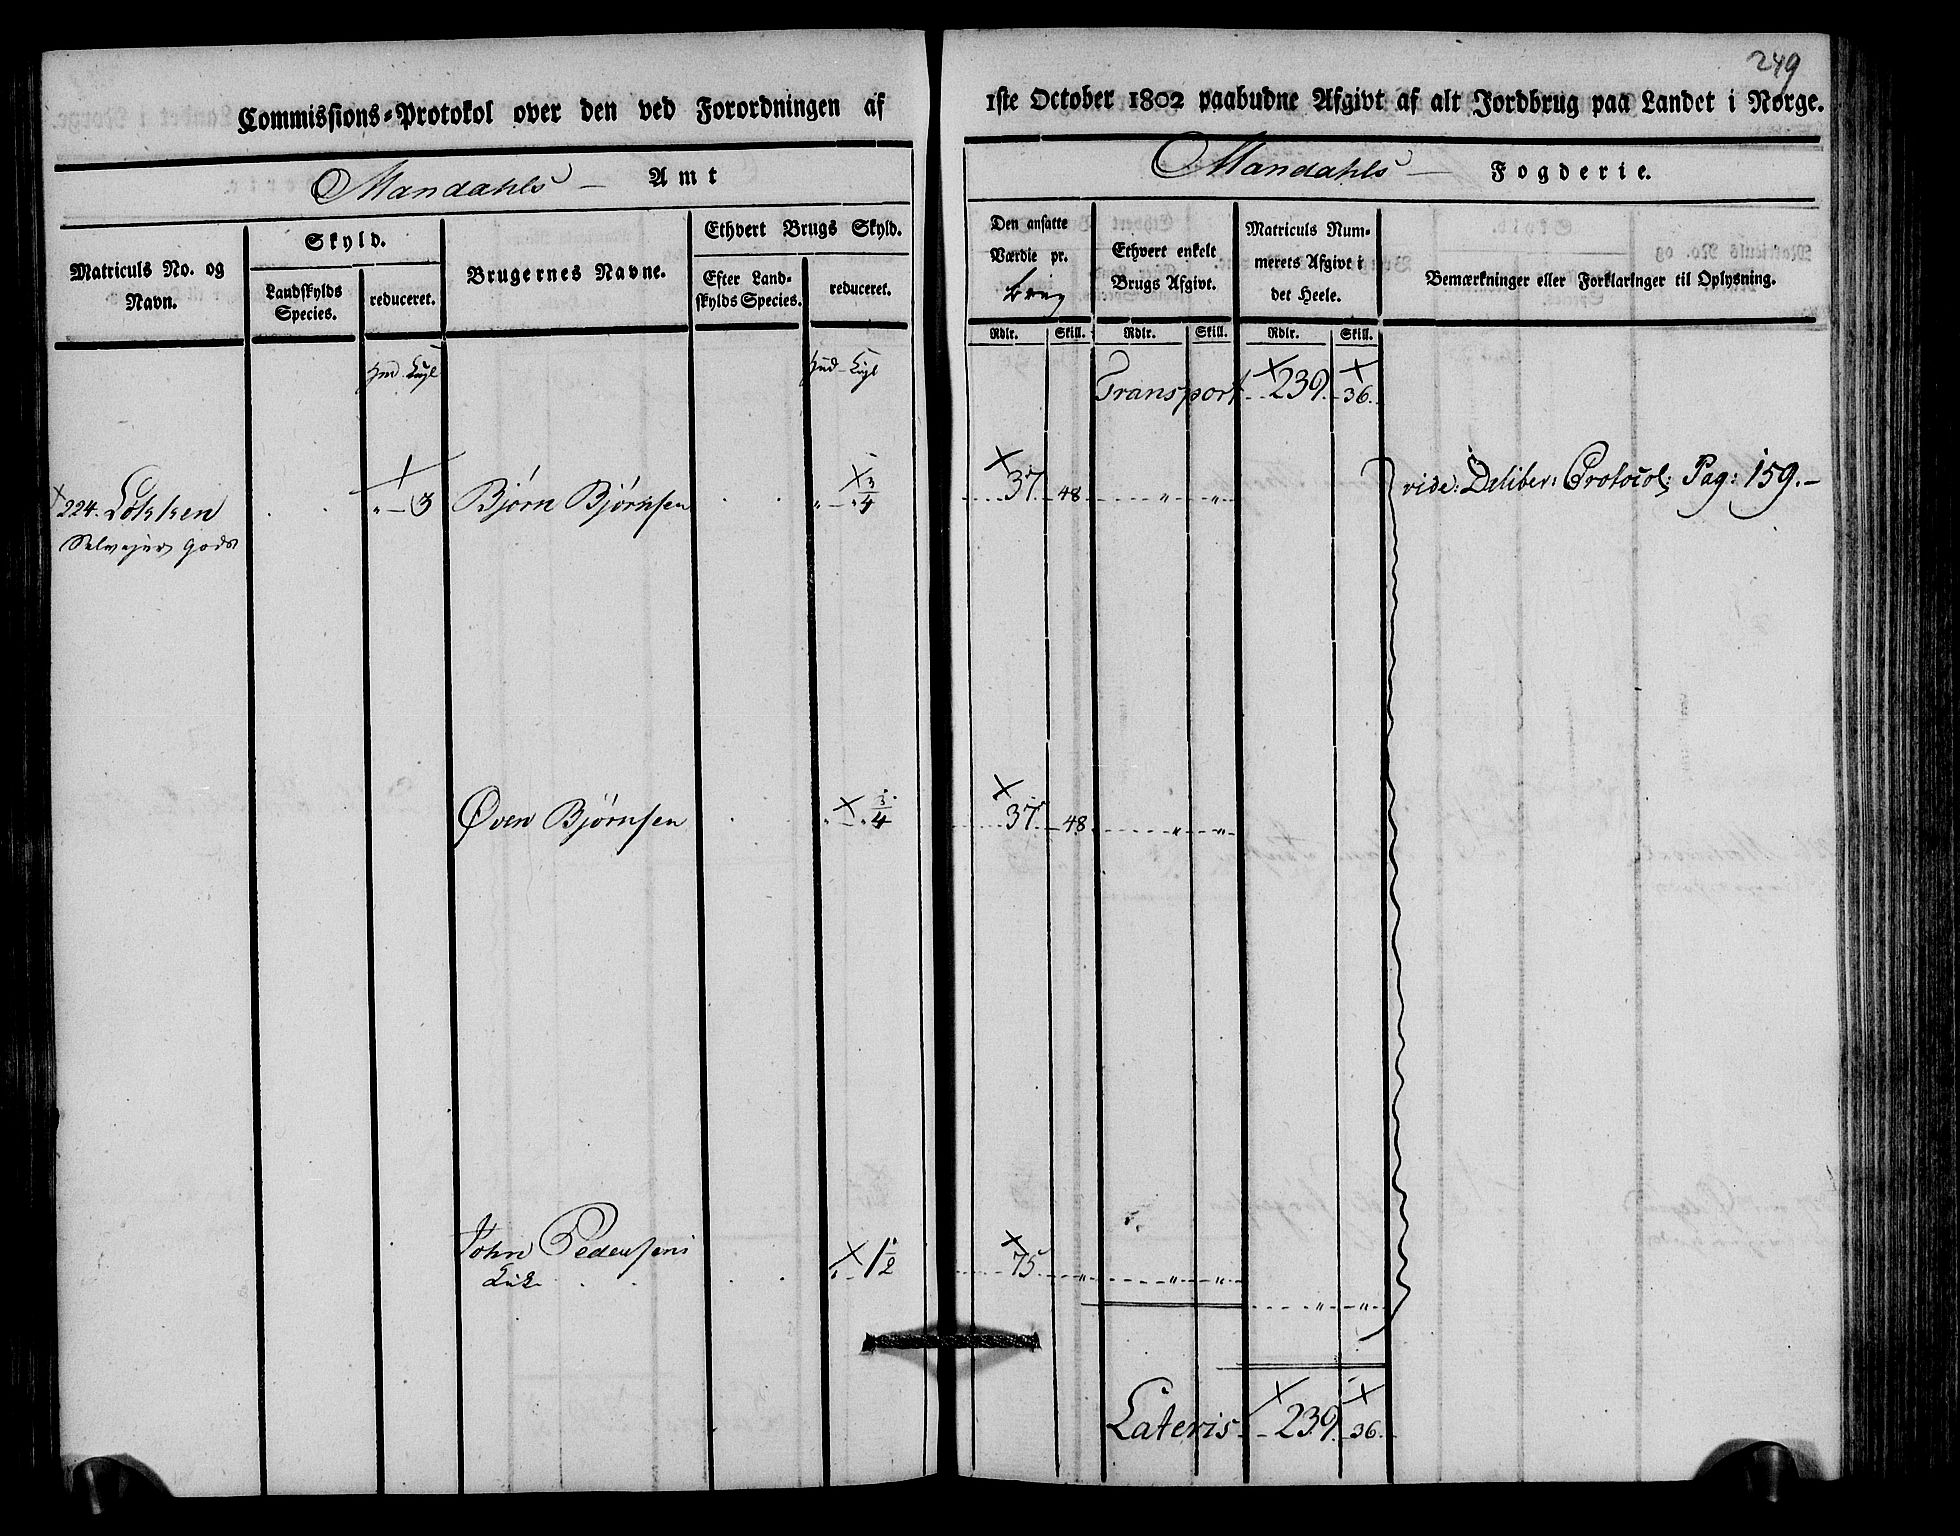 249
Commissions-Protokol over den ved Forordningen af 1ste October 1802 paabudne Afgivt af alt Jordbrug paa Landet i Norge.
Mandahls Amt
Mandahls Fogderie.
Matriculs No. og Navn.
Skyld.
Landskylds Species.
reduceret.
Brugernes Navne.
Ethvert Brugs Skyld.
Efter Landskylds Species.
reduceret.
Den ansatte Værdie pr.
Brug
Ethvert enkelt Brugs Afgivt.
Matriculs Nummerets Afgivt i det Heele.
Bemærkninger eller Forklaringer til Oplysning.
Rdlr. Skill. Rdlr. Skill. Rdlr. Skill.
Transport 239. 36.
224. Løkken " 3 Bjørn Bjørnsen " " 3/4 37 48 " " vide: Deliber: Protocol: Pag: 159.
Selvejer gods
Øven Bjørnsen " " 3/4 37 48 " "
John Pedersens " 1 1/2 75 " " "
" "
Lateris 239. 36.